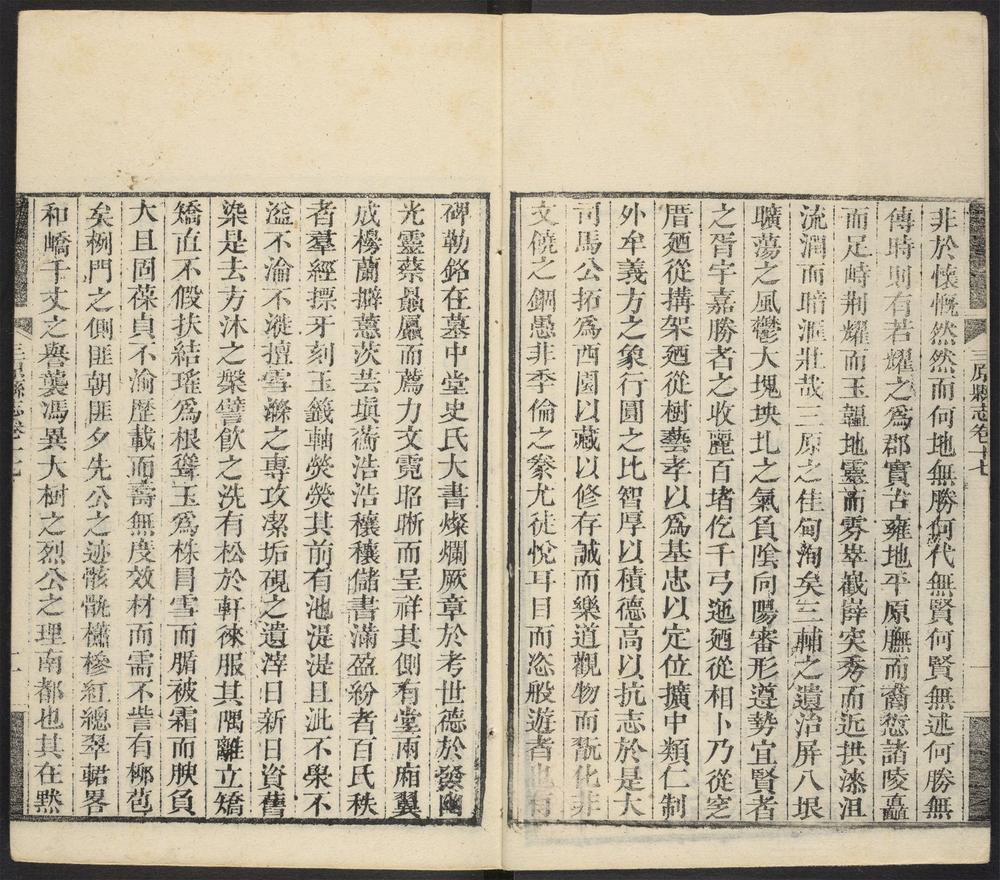 非於懷慨然然而何地無勝何代無賢何賢無述何勝無
傳時則有若耀之為郡實古雍地平原膴而裔愆諸陵矗
而足峙荆耀而玉韞地靈而雰崒嶻嶭突秀而近拱漆沮
流潤而暗滙壯哉三原之佳甸洵矣三輔之遺治屏八垠
曠蕩之風鬱大塊坱圠之氣負陰向陽審形遵勢宜賢者
之胥宇嘉勝者之收麗百堵仡千弓迤廼從相卜乃從窆
厝廼從搆架廼從樹藝孝以為基忠以定位擴中類仁制
外牟義方之象行圓之比智厚以積德高以抗志於是大
司馬公拓為西園以藏以修存誠而樂道觀物而翫化非
文饒之錮愚非季倫之豢尤徒悅耳目而恣般遊者也有
三原縣志卷十七
碑勒銘在墓中堂史氏大書燦爛厥章於考世德於發幽
光靈蔡贔屭而薦力文霓昭晰而呈祥其側有堂兩廂翼
成櫋蘭擗蕙茨芸塓蘅浩浩穰穰儲書滿盈紛者百氏秩
者羣經摽牙刻玉籤軸熒熒其前有池湜湜且泚不槩不
溢不淪不漇擅雪滌之專攻潔垢硯之遺滓日新日資舊
染是去方沐之槃譬飲之洗有松於軒徠服其隅離立矯
矯直不假扶結瑤為根聳玉為株冒雪而腯被霜而腴負
大且固葆貞不渝歷載而壽無度效材而需不訾有梛苞
矣栵門之側匪朝匪夕先公之迹骸骩橚槮紅總翠輵畧
和嶠千丈之譽襲馮異大樹之烈公之理南都也其在黙